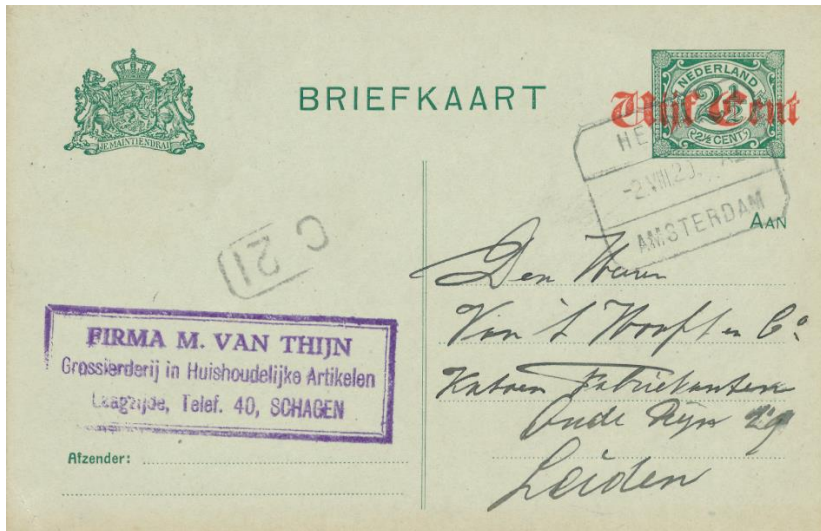 JE MAINTIENDRAI
BRIEFKAART
NEDERLAND
2½
2½ CENT
Vijf Cent
HE
-2.VIII.20.
AMSTERDAM
AAN
C 21
Den Heeren
Van 't Hooft en Co.
Katoen Fabrikanten
Oude Rijn 29
Leiden
FIRMA M. VAN THIJN
Grossierderij in Huishoudelijke Artikelen
Laagzijde, Telef. 40, SCHAGEN
Afzender: